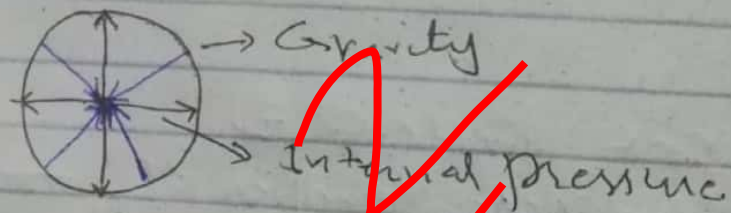 Gravity
Internal pressure